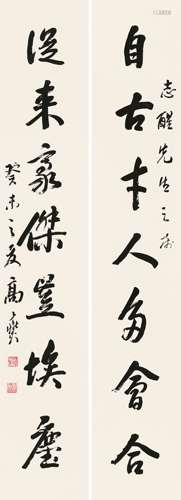 自古才人多會合
志醒先生之属
從来豪傑豈埃塵
癸未之夏高燮